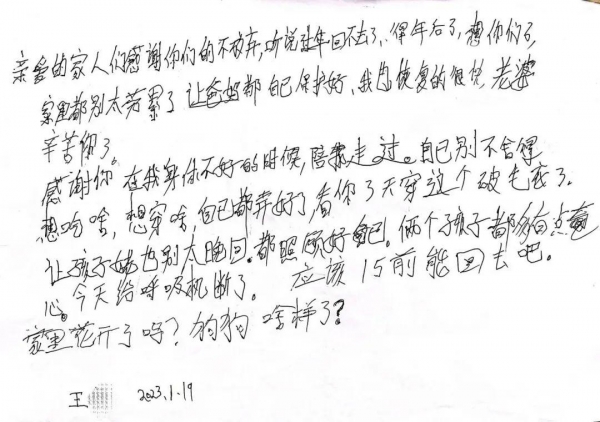 亲爱的家人们感谢你们的不放弃,听说过年回不去了,得年后了,想你们了,
家里都别太劳累了让爸妈都自己保护好,我自恢复的很快,老婆
辛苦你了。
感谢你,在我身体不好的时候,陪我走过。自己别不舍得
想吃啥,想穿啥,自己都弄好了,看你了天穿这个破毛衣了。
让孩子她也别太晚回。都照顾好自己。俩个孩子都多有点爱
心。今天给呼吸机断了。应该15前能回去吧。
家里花开了吗?狗狗啥样了?
王
2023.1.19